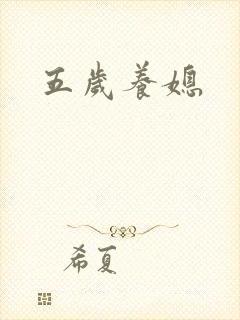 五歲養媳
希夏